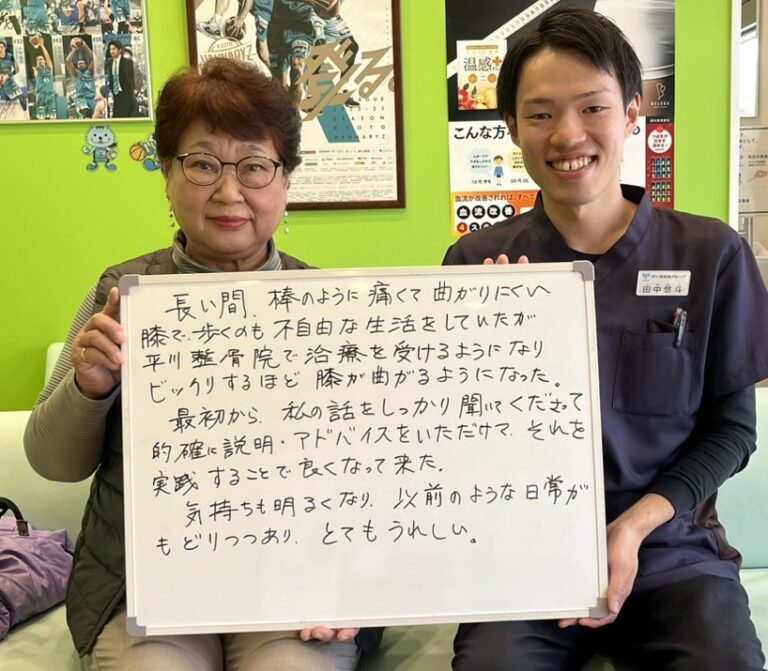 KYOTO
HANNARYZ
登る。
LEAGUE
SEASON
KYOTO
HANNARYZ
温感+
BELEGA
こんな方
10代 学生
20代 OL
血流が改善されれば、すべて
血流改善
4
長い間、棒のように痛くて曲がりにくい
膝で、歩くのも不自由な生活をしていたが
平川整骨院で治療を受けるようになり
ビックリするほど膝が曲がるようになった。
最初から、私の話をしっかり聞いてくださって
的確に説明・アドバイスをいただけて、それを
実践することで良くなって来た。
気持ちも明るくなり、以前のような日常が
もどりつつあり、とてもうれしい。
平川接骨院グループ
田中悠斗